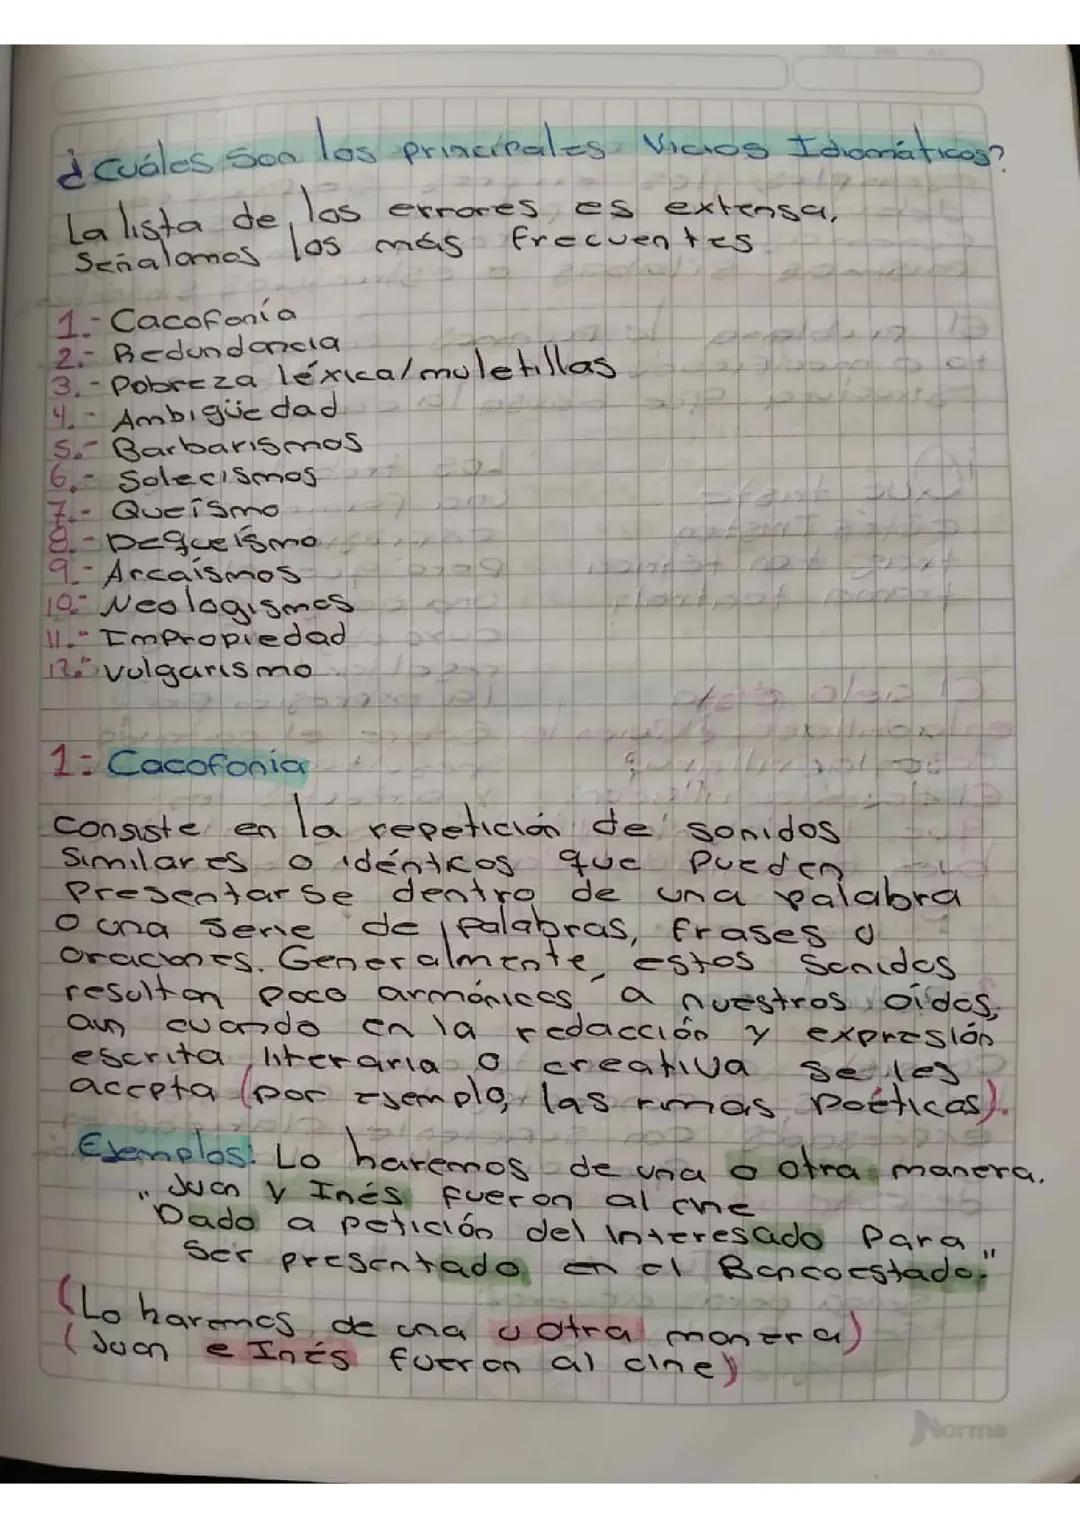 ¿Cuáles Son los principales Vicios Idiomáticos?
La lista de los errores es extensa,
Señalamos los más frecuentes
1.- Cacofonía
2.- Redundancia
3.- Pobreza léxica/muletillas
4.- Ambigüedad
5.- Barbarismos
6.- Solecismos
7.- Queísmo
8.- Dequeísmo
9.- Arcaísmos
10.- Neologismos
11.- Impropiedad
12.- Vulgarismo
1- Cacofonía
Consiste en la repetición de sonidos
Similares o idénticos que pueden
Presentarse dentro de una palabra
o una serie de palabras, frases o
oraciones. Generalmente, estos sonidos
resultan poco armónicos a nuestros oídos,
aun cuando en la redacción y expresión
escrita literaria o creativa se les
accpta (por ejemplo, las rimas poéticas).
Ejemplos: Lo haremos de una o otra manera.
Juan y Inés fueron al cine
"Dado a petición del interesado Para
Ser presentado en el Bancoestado."
(Lo haremos de una u otra manera)
(Juan e Inés fueron al cine)
Norma